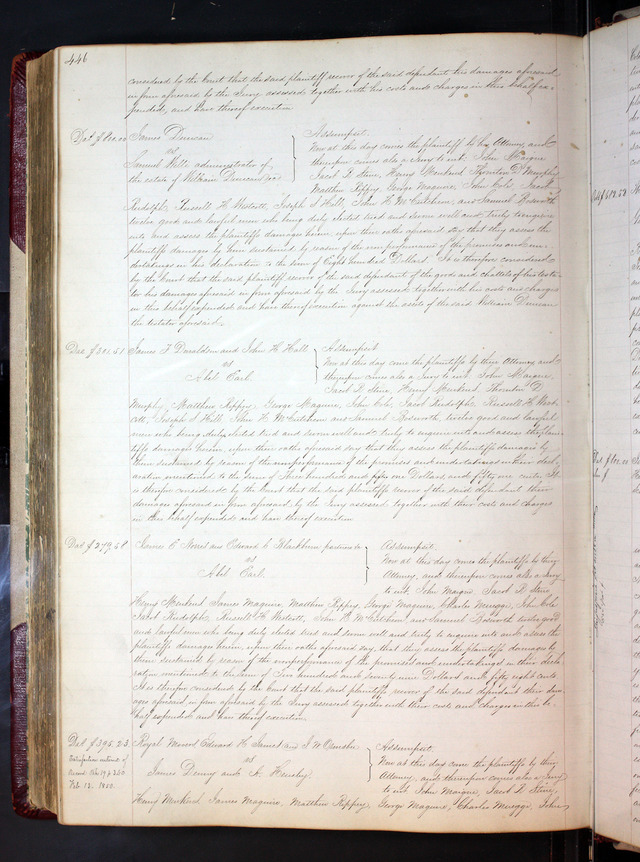 446
considered by the Court that the said plaintiff recover of the said defendant his damages aforesaid
in form aforesaid by the Jury assessed together with his costs and charges in this behalf ex-
pended, and have thereof execution
James Duncan
vs
Samuel Hall, administrator of
the estate of William Duncan
Assumpsit.
Now at this day comes the plaintiff by his Attorney, and
thereupon comes also a Jury to wit: John Maigne
Jacob R. Stine, Henry Murkind Thornton D. Murphy
Matthew Rippey, George Maguire, John Cole, Jacob
Rudolph, Russell H. Westcott, Joseph S Hull, John H. McCutchen, and Samuel Bosworth
twelve good and lawful men who being duly elected tried and sworn well and truly to enquire
into and assess the plaintiffs damages herein, upon their oaths aforesaid say that they assess the
plaintiffs damages by him sustained by reason of the nonperformance of the promises and un-
dertakings in the declaration to the sum of Eight hundred Dollars. It is therefore considered
by the Court that the said plaintiff recover of the said defendant of the goods and chattels of his testa-
tor his damages aforesaid in form aforesaid by the Jury assessed together with his costs and charges
in this behalf expended and have thereof execution against the assets of the said William Duncan
the testator aforesaid.
Dad $301.51
James F. Donaldson and John H. Hall
vs
Abel Carl.
Assumpsit
Now at this day come the plaintiffs by their Attorney, and
thereupon comes also a Jury to wit: John Maigne,
Jacob R. Stine, Henry Murkind Thornton D
Murphy, Matthew Rippey, George Maguire, John Cole, Jacob Rudolph, Russell H. West-
cott, Joseph S Hull, John H. McCutchen and Samuel Bosworth, twelve good and lawful
men who being duly elected tried and sworn well and truly to enquire into and assess the plain-
tiffs damages herein, upon their oaths aforesaid say that they assess the plaintiffs damages by
them sustained by reason of the nonperformance of the promises and undertakings in their decl-
aration mentioned to the sum of Three hundred and one Dollars, and fifty one cents. It
is therefore considered by the Court that the said plaintiffs recover of the said defendant their
damages aforesaid in form aforesaid by the Jury assessed together with their costs and charges
in this behalf expended and have thereof execution
Dad $279.58
James C. Norris and Edward C Blackburn
vs
Abel Carl.
Assumpsit.
Now at this day comes the plaintiffs by their
Attorney, and thereupon comes also a Jury
to wit John Maigne Jacob R. Stine
Henry Murkind James Maguire, Matthew Rippey, George Maguire, Charles Mueggo, John Cole
Jacob Rudolph, Russell H Westcott, John H. McCutchen and Samuel Bosworth twelve good
and lawful men who being duly elected tried and sworn well and truly to enquire into and assess the
plaintiffs damages herein, upon their oaths aforesaid say, that they assess the plaintiffs damages by
them sustained by reason of the nonperformance of the promises and undertakings in their decl-
aration mentioned to the sum of Two hundred and seventy nine Dollars and fifty eight cents
It is therefore considered by the Court that the said plaintiffs recover of the said defendant their dam-
ages aforesaid in form aforesaid by the Jury assessed together with their costs and charges in this be-
half expended and have thereof execution
Dad $395.23
Satisfaction entered of
Record
Feb. 12.
Edward H. James and
vs
James Denny and
Assumpsit.
Now at this day come the plaintiffs by their
Attorney, and thereupon comes also a Jury
to wit John Maigne, Jacob R. Stine,
Henry Murkind James Maguire, Matthew Rippey, George Maguire, Charles Mueggo, John